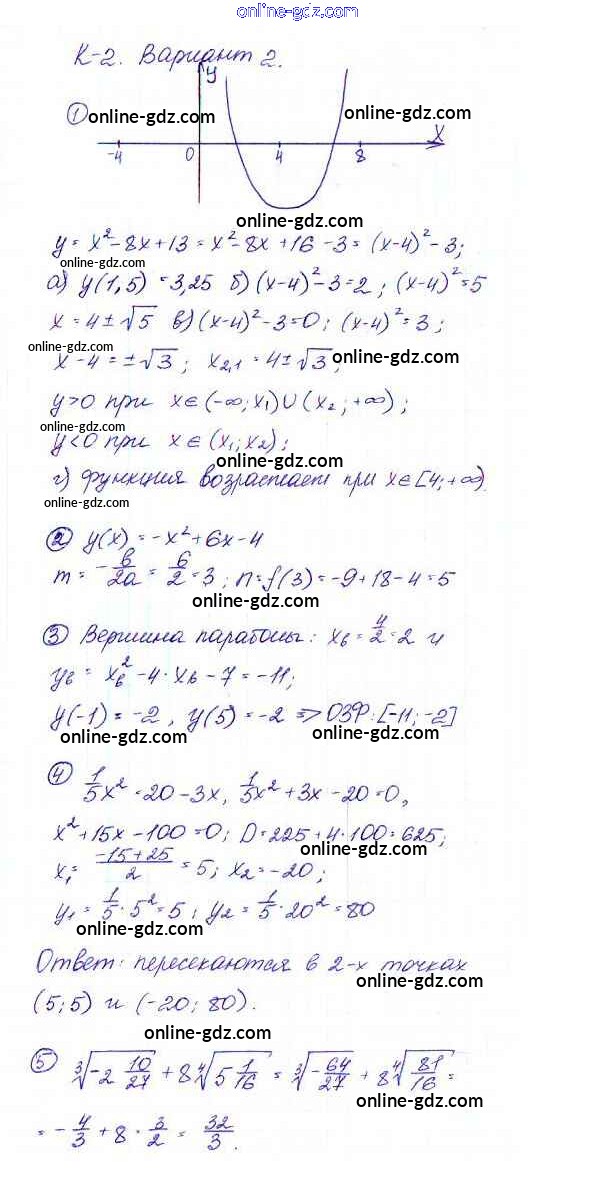 online-gdz.com
К-2. Вариант 2.
y
① online-gdz.com online-gdz.com
x
-4 0 4 8
online-gdz.com
y = x² - 8x + 13 = x² - 8x + 16 - 3 = (x-4)² - 3;
online-gdz.com
а) y(1,5) = 3,25 б) (x-4)² - 3 = 2; (x-4)² = 5
x = 4 ± √5 в) (x-4)² - 3 = 0; (x-4)² = 3;
online-gdz.com
x - 4 = ±√3; x₂,₁ = 4 ± √3; online-gdz.com
y > 0 при x ∈ (-∞; x₁) ∪ (x₂; +∞);
online-gdz.com
y < 0 при x ∈ (x₁; x₂);
online-gdz.com
г) функция возрастает при x ∈ [4; +∞)
online-gdz.com
② y(x) = -x² + 6x - 4
m = -b/2a = 6/2 = 3; n = f(3) = -9 + 18 - 4 = 5
online-gdz.com
③ Вершина параболы: xв = 4/2 = 2 и
yв = xв² - 4·xв - 7 = -11;
y(-1) = -2, y(5) = -2 => ОЗФ: [-11; -2]
online-gdz.com online-gdz.com
④ 1/5x² = 20 - 3x, 1/5x² + 3x - 20 = 0,
online-gdz.com
x² + 15x - 100 = 0; D = 225 + 4·100 = 625;
online-gdz.com
x₁ = (-15+25)/2 = 5; x₂ = -20;
y₁ = 1/5·5² = 5; y₂ = 1/5·20² = 80
online-gdz.com
Ответ: пересекаются в 2-х точках
online-gdz.com
(5; 5) и (-20; 80).
online-gdz.com
⑤ ³√(-2 10/27) + 8 ⁴√(5 1/16) = ³√(-64/27) + 8 ⁴√(81/16) =
online-gdz.com
= -4/3 + 8 · 3/2 = 32/3.
online-gdz.com